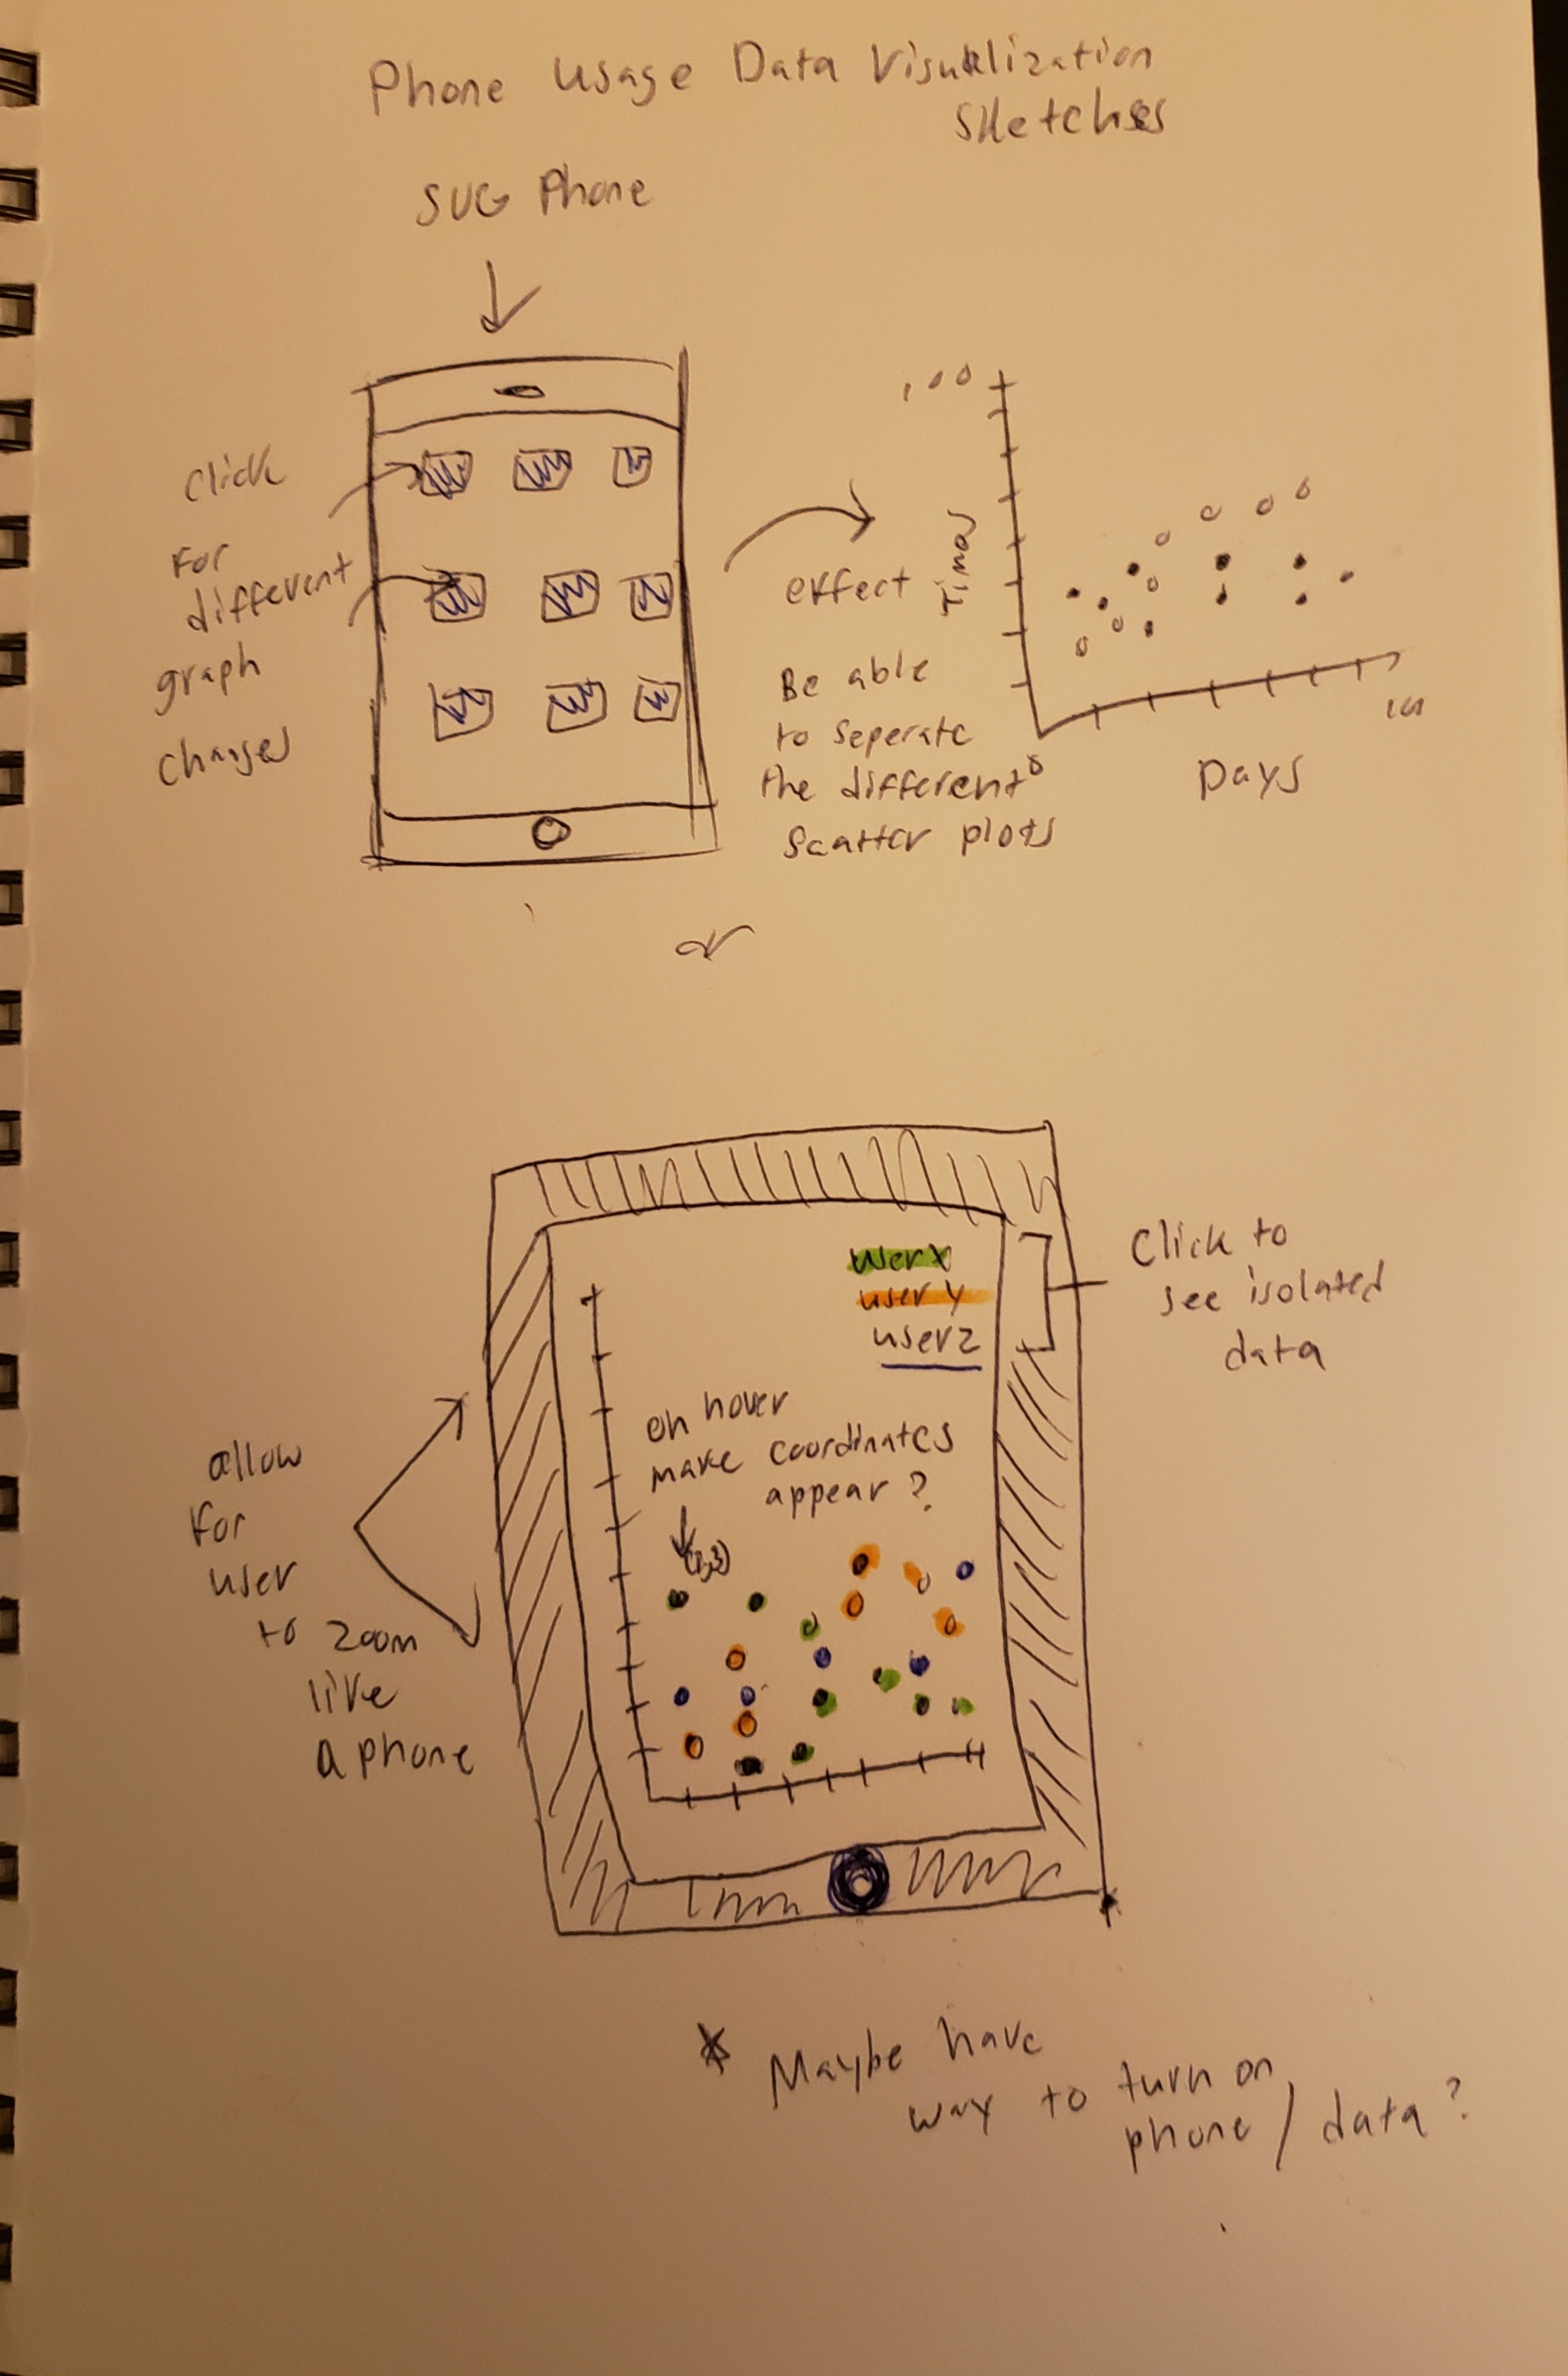 Phone Usage Data Visualization
Sketches
SVG Phone
Click
For
different
graph
changes
effect
Be able
to seperate
the different
scatter plots
100
Time
0
Days
or
userx
user y
userz
Click to
see isolated
data
on hover
make coordinates
appear?
allow
for
user
to zoom
like
a phone
* Maybe have
way to turn on
phone / data?